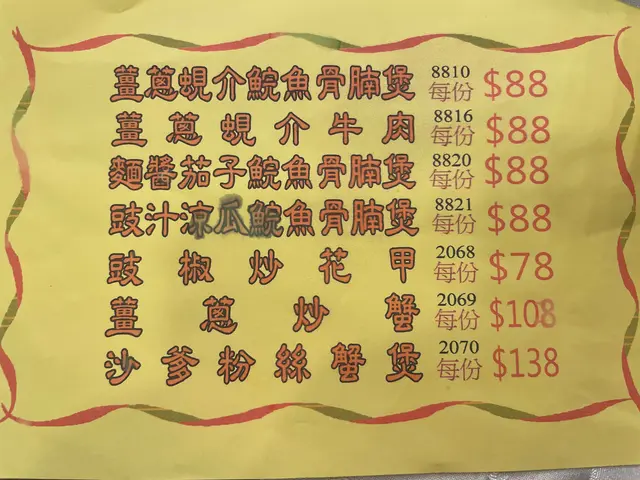 薑蔥蜆介鯇魚骨腩煲 8810 每份 $88
薑蔥蜆介牛肉 8816 每份 $88
麵醬茄子鯇魚骨腩煲 8820 每份 $88
豉汁凉瓜鯇魚骨腩煲 8821 每份 $88
豉椒炒花甲 2068 每份 $78
薑蔥炒蟹 2069 每份 $108
沙爹粉絲蟹煲 2070 每份 $138